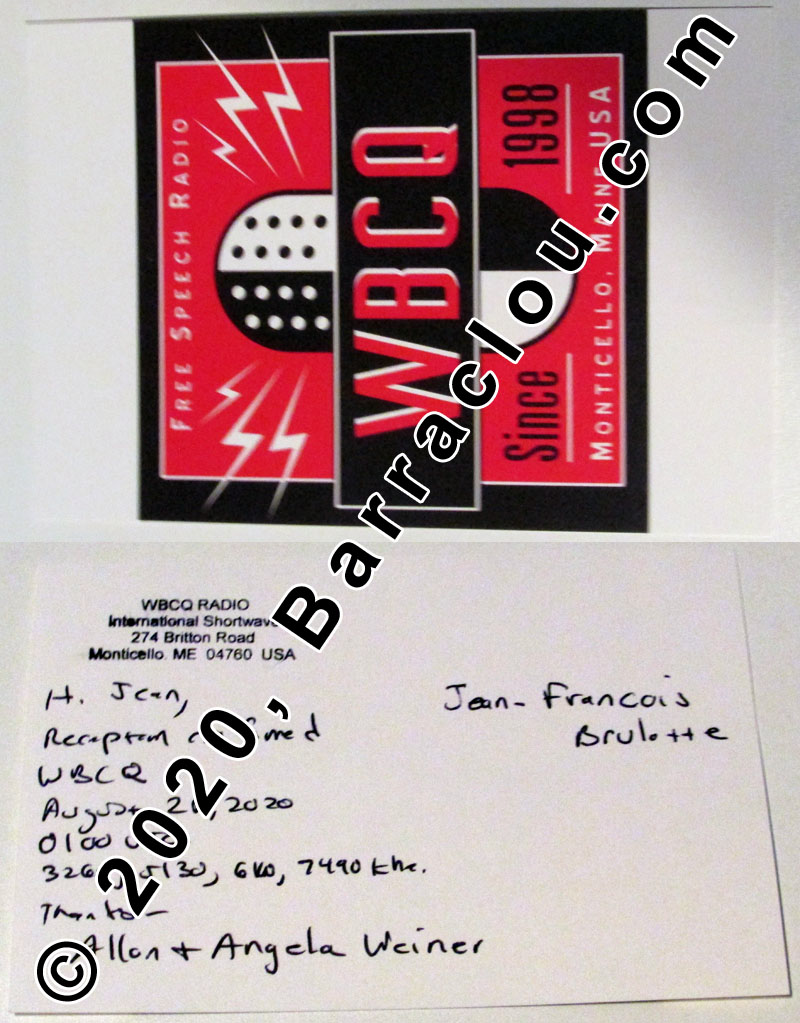 FREE SPEECH RADIO
WBCQ
Since 1998
MONTICELLO, MAINE USA
© 2020, Barraclou.com
WBCQ RADIO
International Shortwave
274 Britton Road
Monticello. ME 04760 USA
Hi Jean,
Reception
WBCQ
August 2020
0100
5130, 7490 khz.
Thanks—
Allan + Angela Weiner
Jean-Francois
Brulotte